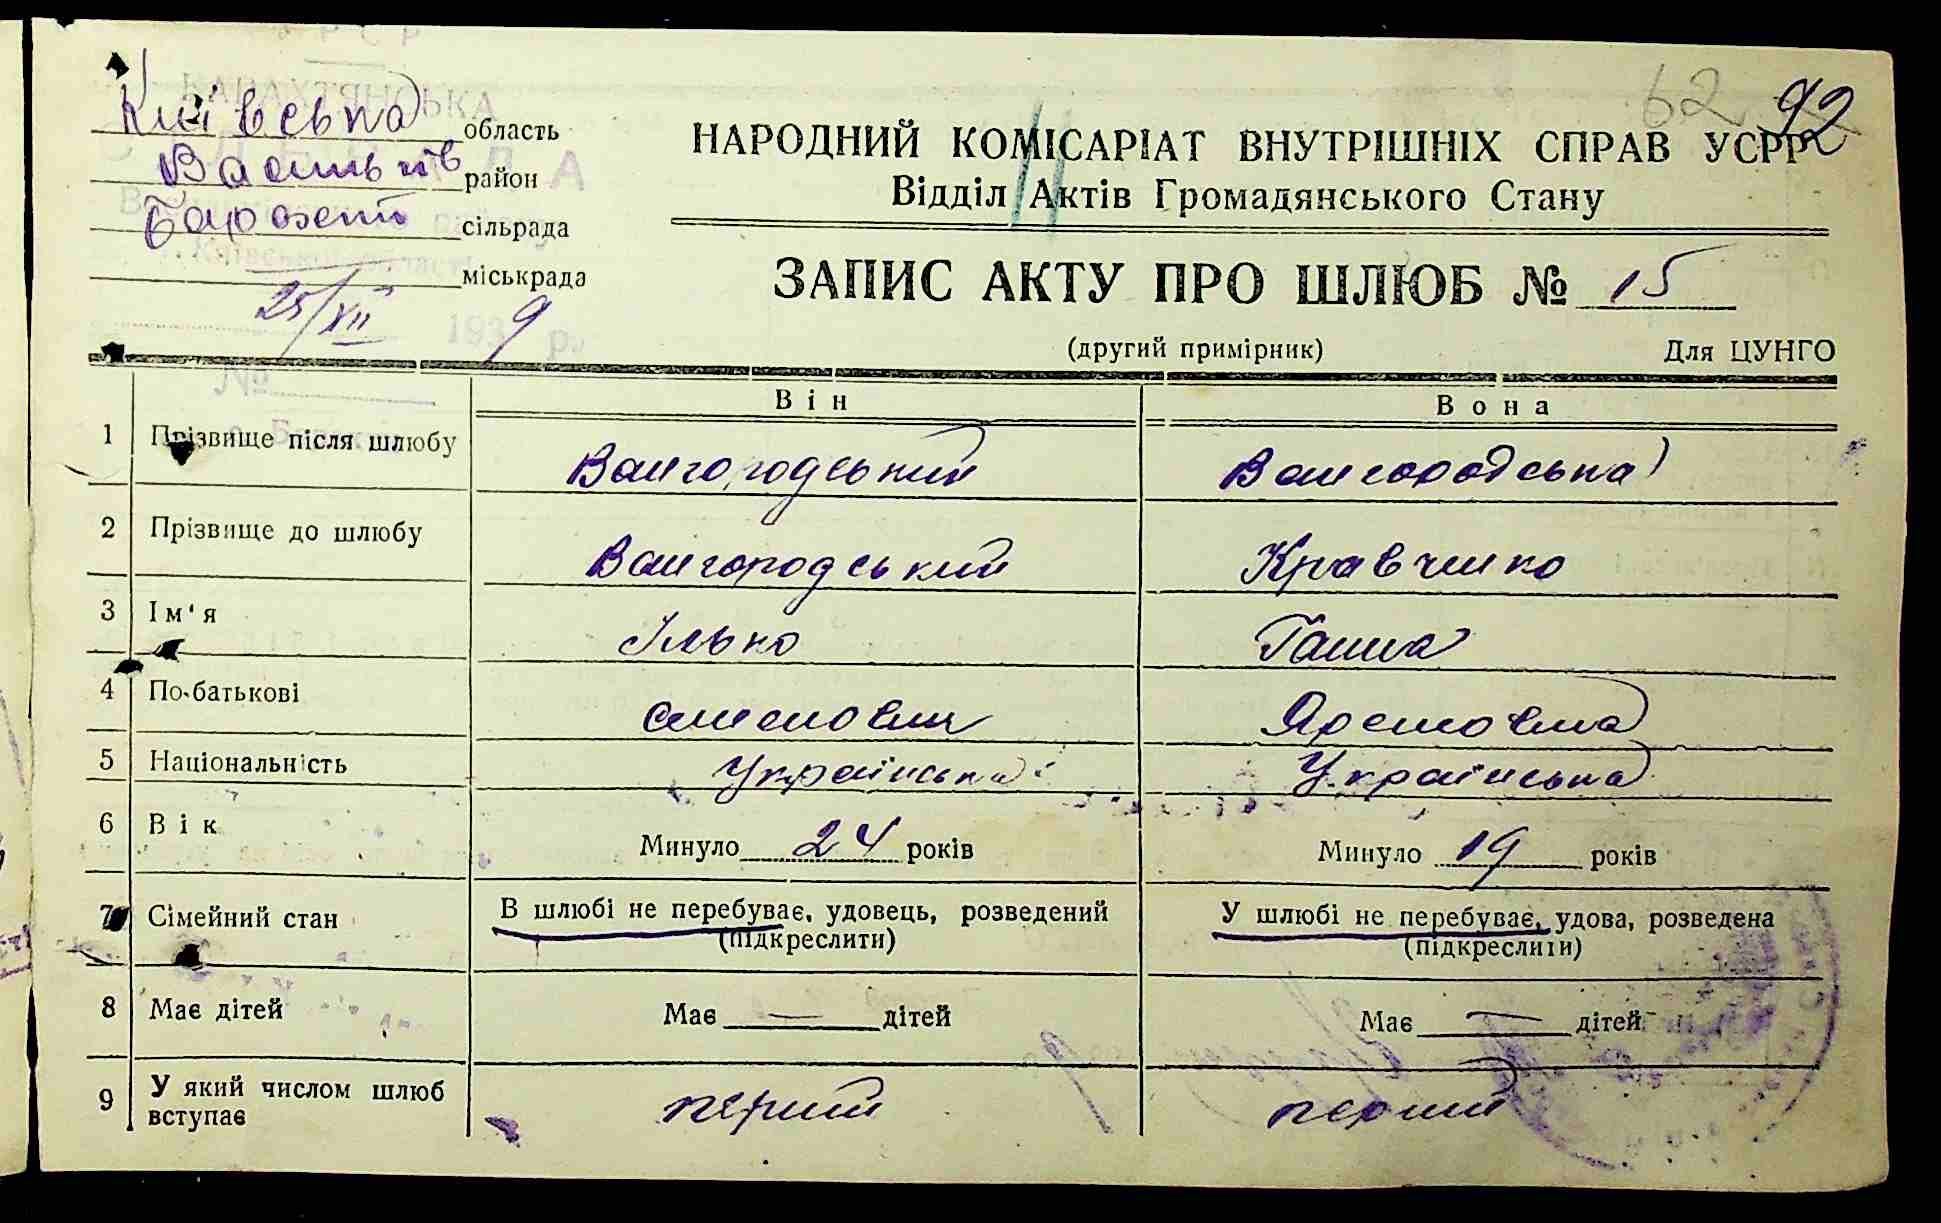 62 92
Київська область
Васильків район
сільрада
міськрада
25/XII 1939 р.
№
НАРОДНИЙ КОМІСАРІАТ ВНУТРІШНІХ СПРАВ УСРР
Відділ Актів Громадянського Стану
ЗАПИС АКТУ ПРО ШЛЮБ № 15
(другий примірник) Для ЦУНГО
Він Вона
1 Прізвище після шлюбу Вишгородський Вишгородська
2 Прізвище до шлюбу Вишгородський Кравченко
3 Ім'я Ілько Ганна
4 По-батькові Яремовна
5 Національність Українська Українська
6 Вік Минуло 24 років Минуло 19 років
7 Сімейний стан В шлюбі не перебуває, удовець, розведений У шлюбі не перебуває, удова, розведена
(підкреслити) (підкреслити)
8 Має дітей Має — дітей Має — дітей
9 У який числом шлюб
вступає перший перший